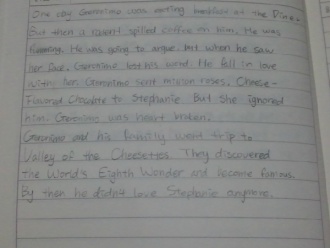 One day Geronimo was eating breakfast at the Diner.
But then a rodent spilled coffee on him. He was
fuming. He was going to argue. but when he saw
her face. Geronimo lost his word. He fell in love
with her. Geronimo sent million roses. Cheese-
Flavored Chocolate to Stephanie. But she ignored
him. Geronimo was heart broken.
Geronimo and his family went trip to
Valley of the Cheesettes. They discovered
the World's Eighth Wonder and became famous.
By then he didn't love Stephanie anymore.